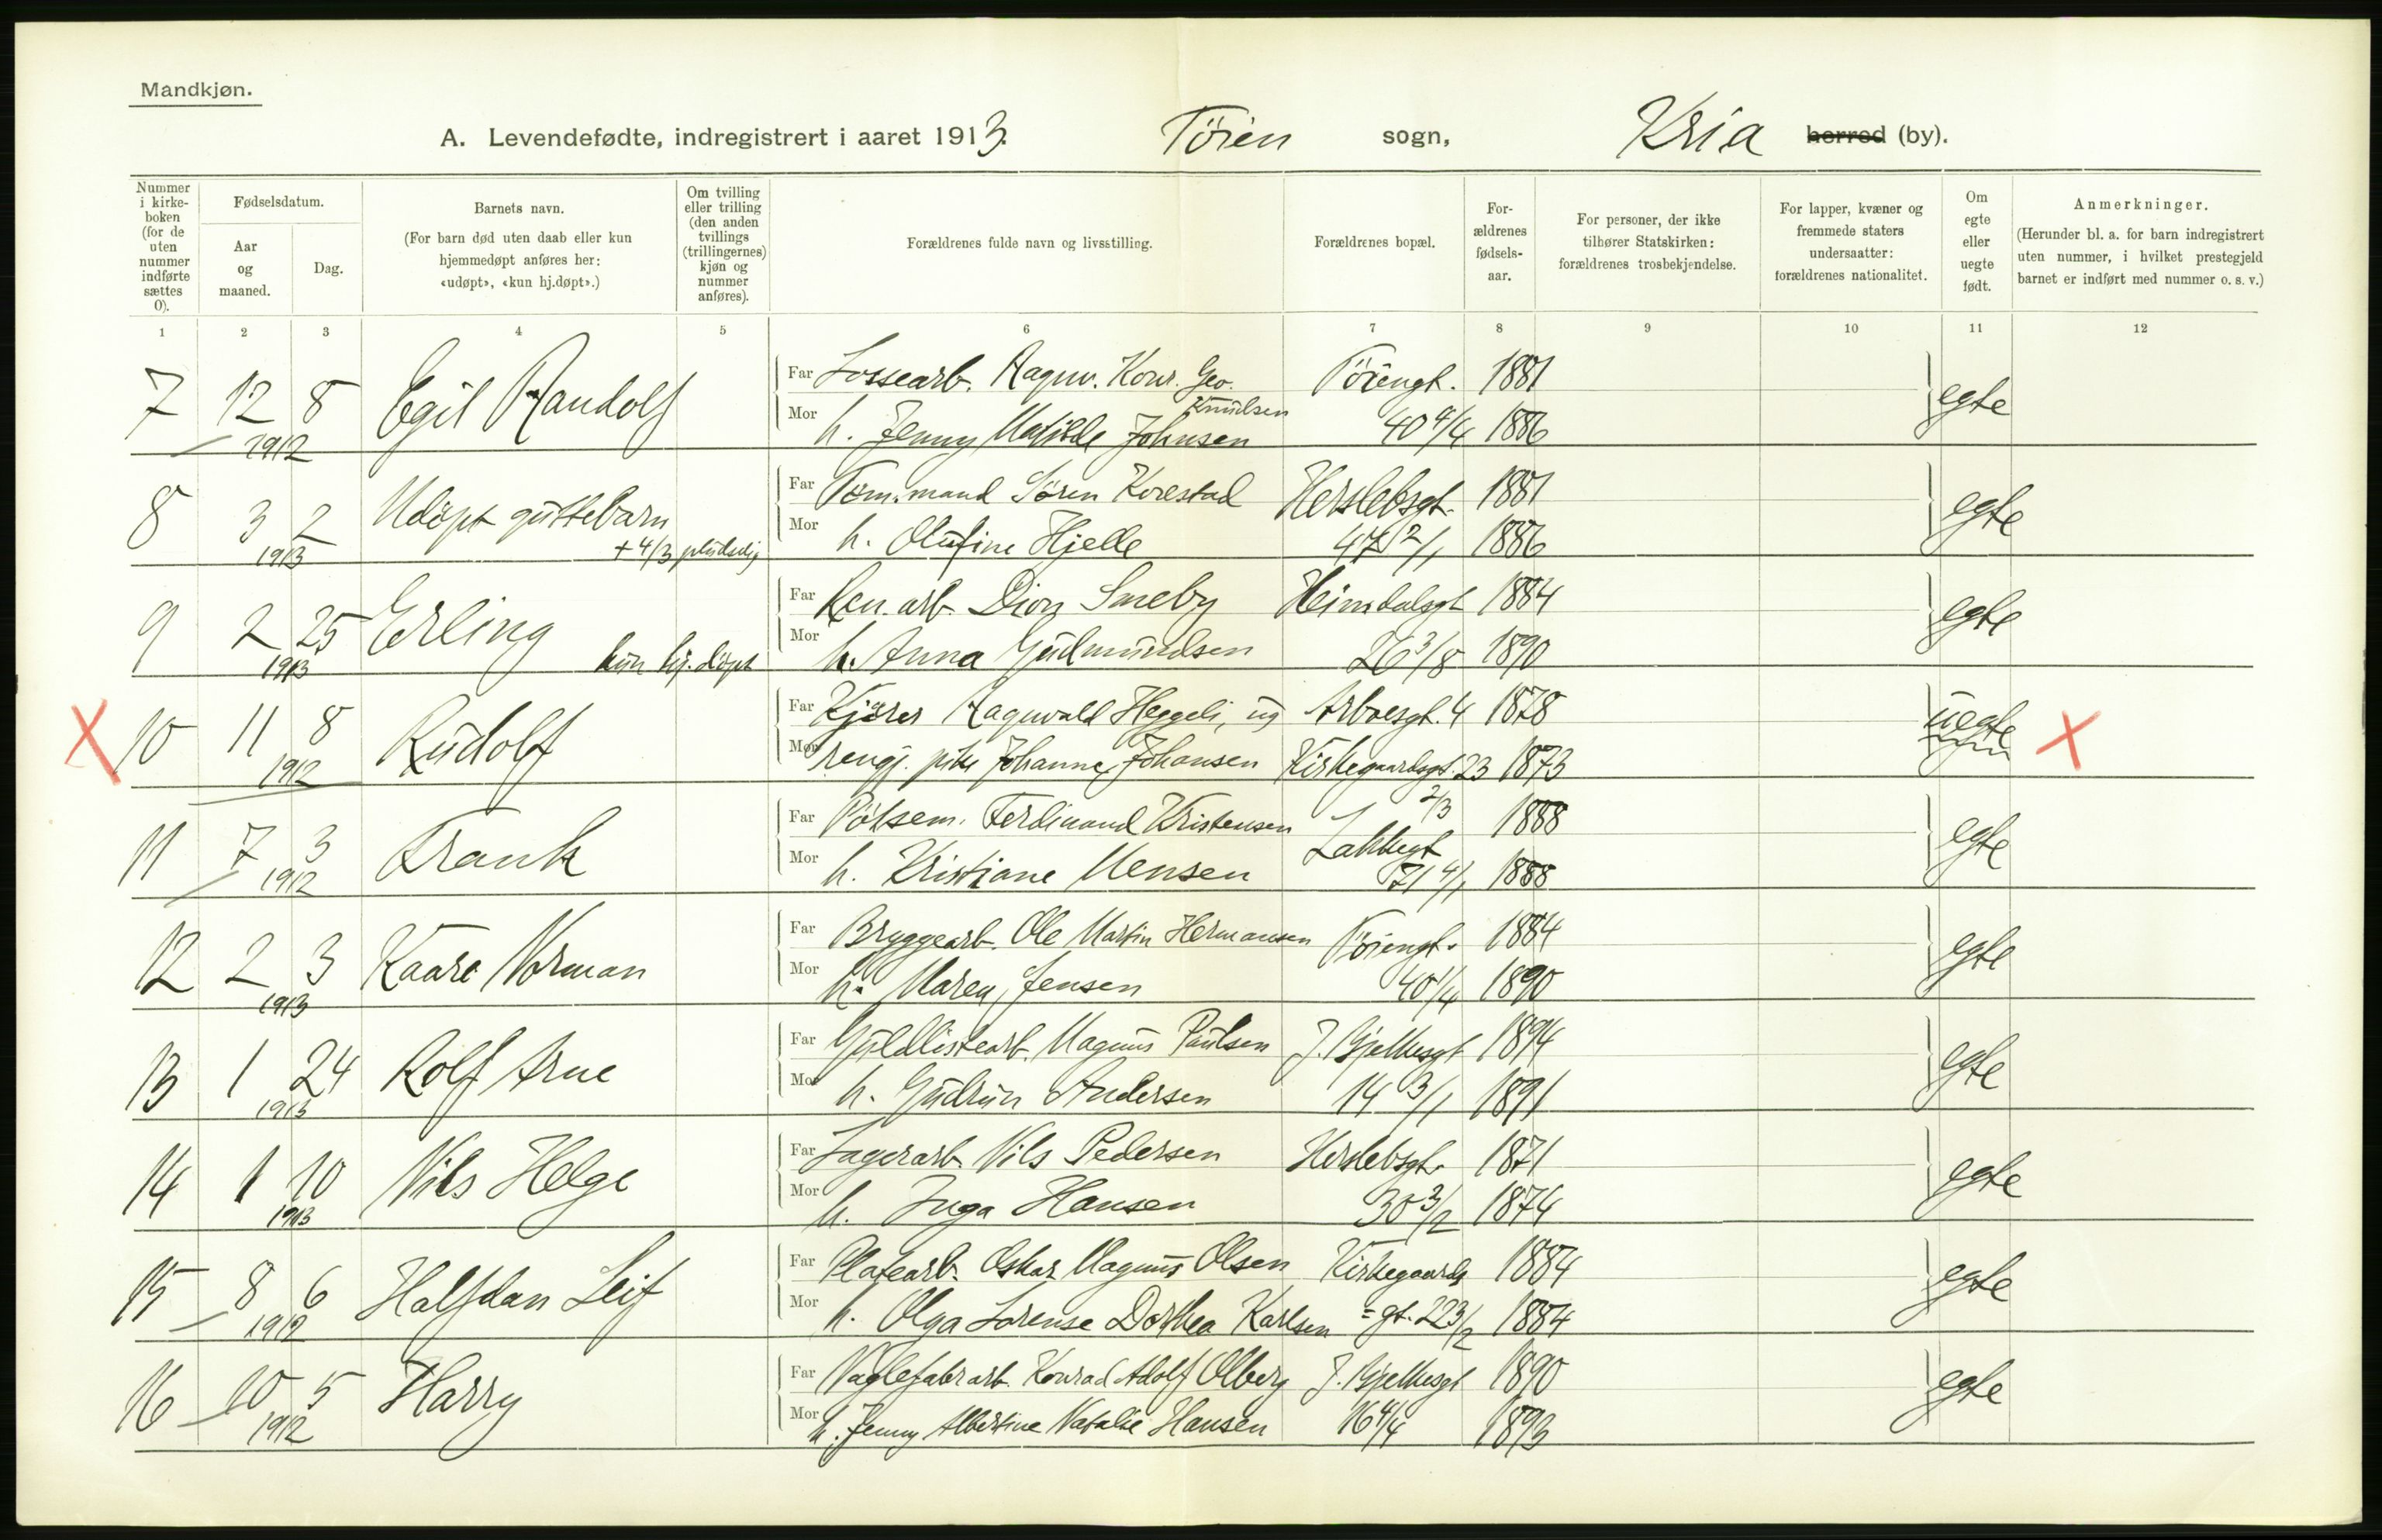 Mandkjøn.
A. Levendefødte, indregistrert i aaret 1913. Tøien sogn, Kria herred (by).
Nummer i kirkeboken (for de uten nummer indførte sættes 0).
Fødselsdatum.
Aar og maaned.
Dag.
Barnets navn.
(For barn død uten daab eller kun hjemmedøpt anføres her: «udøpt», «kun hj.døpt».)
Om tvilling eller trilling (den anden tvillings (trillingernes) kjøn og nummer anføres).
Forældrenes fulde navn og livsstilling.
Forældrenes bopæl.
Forældrenes fødselsaar.
For personer, der ikke tilhører Statskirken: forældrenes trosbekjendelse.
For lapper, kvæner og fremmede staters undersaatter: forældrenes nationalitet.
Om egte eller uegte født.
Anmerkninger.
(Herunder bl. a. for barn indregistrert uten nummer, i hvilket prestegjeld barnet er indført med nummer o. s. v.)
1 2 3 4 5 6 7 8 9 10 11 12
7 12 1912 8 Egil Randolf
Far Lossearb. Ragnv. Konr. Geo. Knudsen Töiengt. 1881
Mor h. Jenny Matilde Johnsen 40 4/4 1886 egte
8 3 1913 2 Udöpt guttebarn + 4/3 pludselig
Far Töm.mand Sören Korestad Herslebsgt. 1881
Mor h. Olufine Hjelle 47 2/1 1886 egte
9 2 1913 25 Erling kun hj. döpt
Far Ren. arb. Dion Smeby Heimdalsgt 1884
Mor h. Anna Gudmundsen 26 3/8 1890 egte
X 10 11 1912 8 Rudolf
Far Kjörer Ragnvald Heggeli, ug Arboesgt. 4 1878
Mor rengj. pike Johanne Johansen Kirkegaardsgt. 23 2/3 1873 uegte X
11 7 1912 3 Frank
Far Pölsem. Ferdinand Kristensen Lakkegt 1888
Mor h. Kristiane Mensen 71 4/1 1888 egte
12 2 1913 3 Kaare Norman
Far Bryggearb. Ole Martin Hermansen Töiengt. 1884
Mor h. Maren Jensen 40 1/4 1890 egte
13 1 1913 24 Rolf Arne
Far Guldlistearb. Magnus Paulsen J. Bjelkesgt 1894
Mor h. Gudrun Andersen 14 3/1 1891 egte
14 1 1913 10 Nils Helge
Far Lagerarb. Nils Pedersen Herslebsgt. 1871
Mor h. Inga Hansen 30 3/2 1874 egte
15 8 1912 6 Halfdan Leif
Far Platearb. Oskar Magnus Olsen Kirkegaards 1884
Mor h. Olga Lorense Dorthea Karlsen =gt. 22 3/2 1884 egte
16 10 1912 5 Harry
Far Naglefabr arb. Konrad Adolf Olberg J. Bjelkesgt 1890
Mor h. Jenny Albertine Natalie Hansen 16 4/4 1893 egte